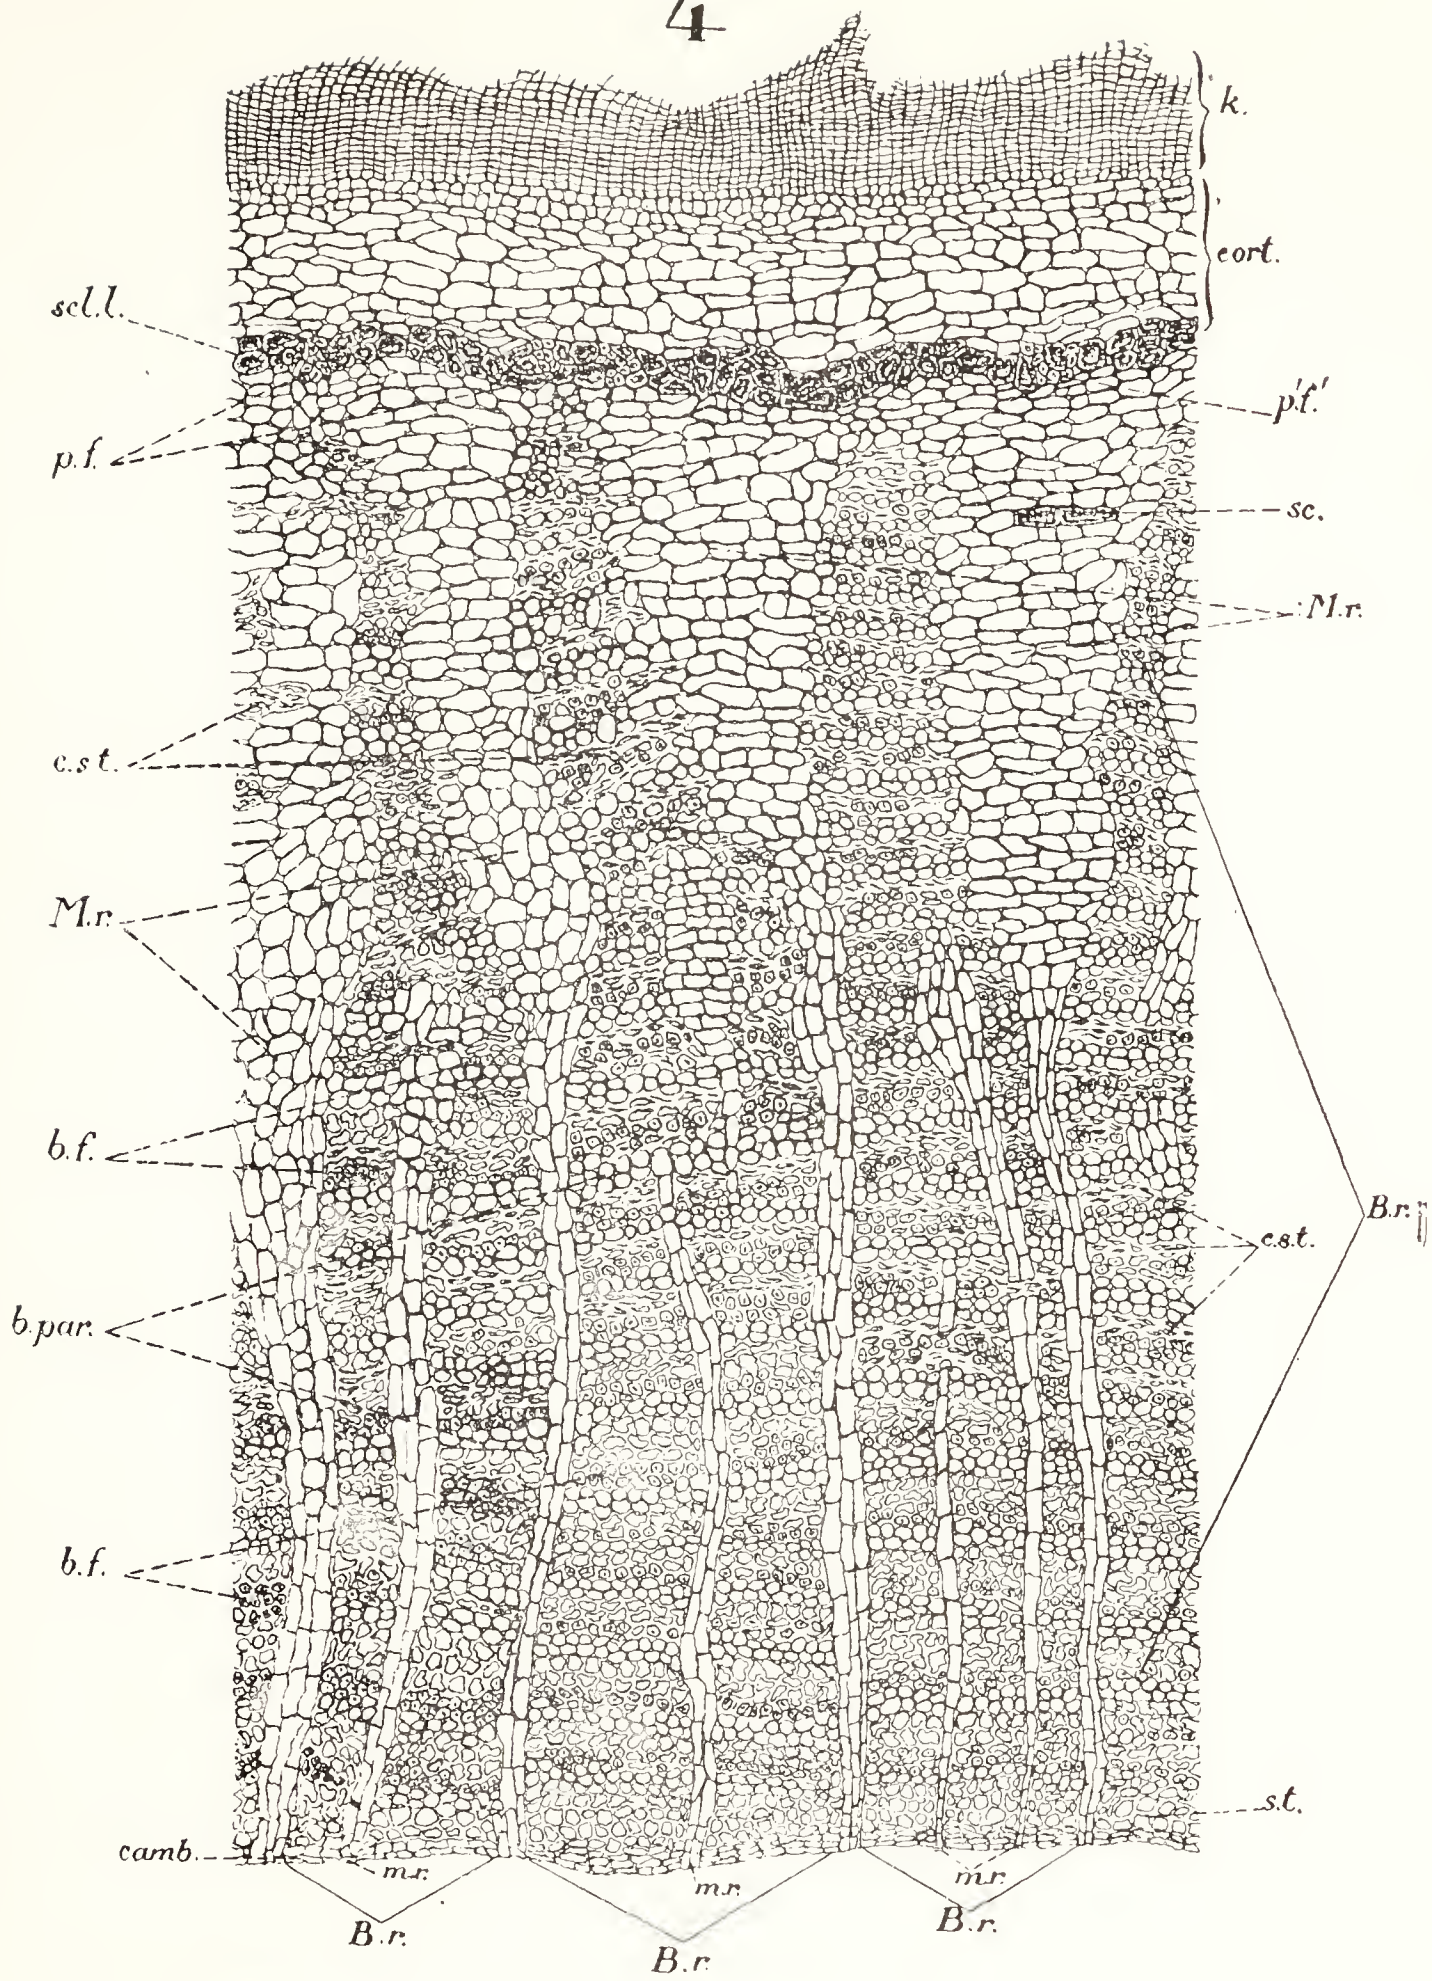 4
k.
cort.
scl.l.
p.f.
p'.f.'
sc.
M.r.
c.s.t.
M.r.
b.f.
B.r.
c.s.t.
b.par.
b.f.
s.t.
camb.
m.r.
m.r.
m.r.
B.r.
B.r.
B.r.